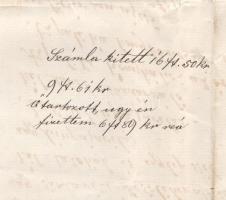 Számla kitett 16 ft. 50 kr
9 ft. 61 kr
Ő tartozott, ugy én
fizettem 6 ft 89 kr reá